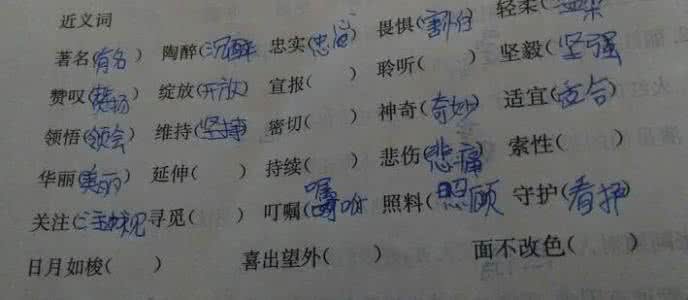 近义词
著名(有名) 陶醉(沉醉) 忠实(忠诚) 畏惧(害怕) 轻柔(
赞叹(赞扬) 绽放(开放) 宣报( ) 聆听( ) 坚毅(坚强)
领悟(领会) 维持(坚持) 密切( ) 神奇(奇妙) 适宜(适合)
华丽(美丽) 延伸( ) 持续( ) 悲伤(悲痛) 索性( )
关注( 寻觅( ) 叮嘱(嘱咐) 照料(照顾) 守护(看护)
日月如梭( ) 喜出望外( ) 面不改色( )